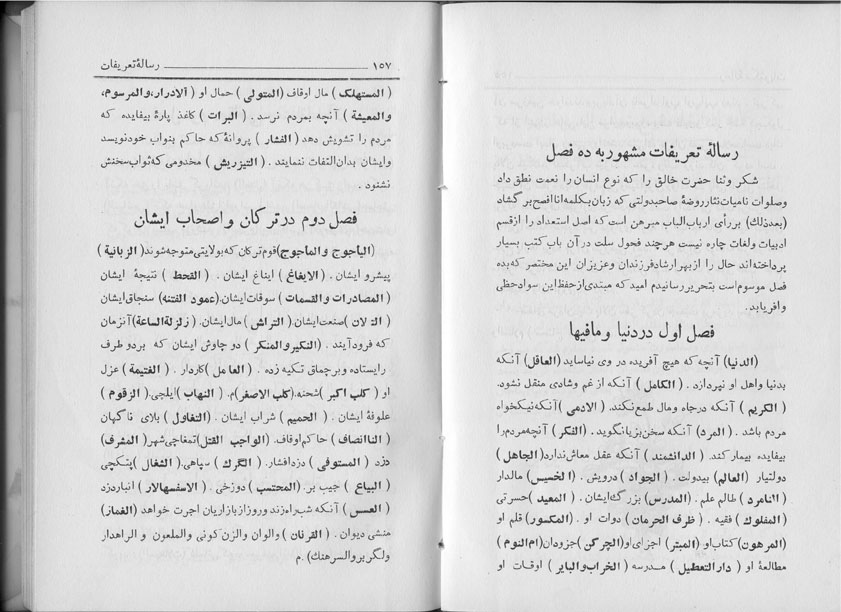 رسالهٔ تعریفات مشهور به ده فصل
شکر وثنا حضرت خالق را که نوع انسان را نعمت نطق داد
وصلوات نامیات نثار روضهٔ صاحبدولتی که زبان بکلمه انا افصح بر گشاد
(بعد ذلك) بر رأی ارباب الباب مبرهن است که اصل استعداد را از قسم
ادبیات ولغات چاره نیست هر چند فحول سلت در آن باب کتب بسیار
پرداخته اند حال را از بهر ارشاد فرزندان وعزیزان این مختصر که بده
فصل موسوم است بتحریر رسانیدم امید که مبتدی از حفظ این سواد حظی
وافر یابد.
فصل اول در دنیا و مافیها
(الدنیا) آنچه که هیچ آفریده در وی نیاساید (العاقل) آنکه
بدنیا واهل او نپردازد . (الکامل ) آنکه از غم وشادی منقل نشود.
( الکریم ) آنکه درجاه ومال طمع نکند. (الادمی) آنکه نیکخواه
مردم باشد . (المرد) آنکه سخن بزیا نگوید . (الفکر) آنچه مردم را
بیفایده بیمار کند. (الدانشمند ) آنکه عقل معاش ندارد (الجاهل)
دولتیار (العالم) بیدولت . (الجواد) درویش . (الخسیس) مالدار
(النامرد ) طالم علم . (المدرس) بزرگ ایشان . (المعید) حسرتی
( المفلوك ) فقیه . (ظرف الحرمان) دوات او . (المکسور) قلم او
(المرهون) کتاب او (المبتر) اجزای او (الچرکن) جزودان (ام النوم )
مطالعهٔ او ( دار التعطیل ) مدرسه (الخراب والبایر) اوقات او
۱۵۷ رسالهٔ تعریفات
( المستهلك ) مال اوقاف (المتولی) حمال او (الادرار، والمرسوم،
والمعیشة ) آنچه بمردم نرسد . ( البرات ) کاغذ پارهٔ بیفایده که
مردم را تشویش دهد ( الفشار ) پروانهٔ که حاکم بنواب خود نویسد
وایشان بدان التفات ننمایند . (التیز ریش ) مخدومی که ثواب سخنش
نشنود .
فصل دوم در ترکان و اصحاب ایشان
(الیاجوج والماجوج) قوم ترکان که بولایتی متوجه شوند (الزبانیة )
پیشرو ایشان . (الایغاغ ) ایناغ ایشان . (القحط ) نتیجهٔ ایشان
(المصادرات والقسمات ) سوقات ایشان. (عمود الفتنه) سنجاق ایشان
(التلان ) صنعت ایشان. (التراش ) مال ایشان. (زلزلة الساعة) آنزمان
که فرود آیند . (النکیر والمنکر ) دو چاوش ایشان که بر دو طرف
رایستاده وبر چماق تکیه زده . ( العامل ) کاردار . (الغنیمة ) عزل
او (کلب اکبر ) شحنه. (کلب الاصغر) م. (النهاب) ایلچی. (الزقوم )
علوفهٔ ایشان . (الحمیم ) شراب ایشان . (التغاول ) بلای ناگهان
( الناانصاف ) حاکم اوقاف. (الواجب القتل) تمغاچی شهر (المشرف)
دزد (المستوفی ) دزد افشار. (الگرك ) سپاهی. (الشغال) بتکچی
(البیاع ) جیب بر. (المحتسب ) دوزخی . (الاسفهسالار) انبار دزد
( العسس ) آنکه شب راه زند وروز از بازاریان اجرت خواهد (الغماز)
منشی دیوان . ( القرنان ) والوان والزن کونی والملعون و الراهدار
ولنگر بر والسرهنك) . م